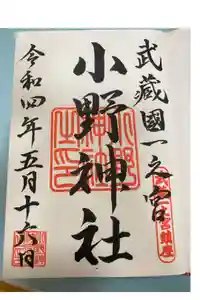 武蔵國一之宮
小野神社
令和四年五月十六日